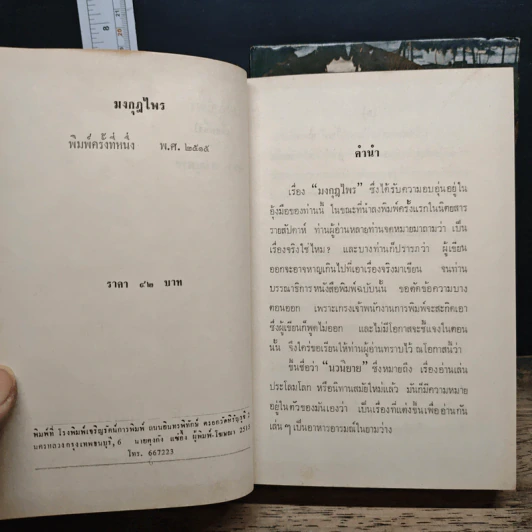 8
9
มงกุฎไพร
พิมพ์ครั้งที่หนึ่ง พ.ศ. ๒๕๑๕
ราคา ๔๒ บาท
พิมพ์ที่ โรงพิมพ์เจริญรัตน์การพิมพ์ ถนนอินทรพิทักษ์
นครหลวงกรุงเทพธนบุรี, 6 นายคุงกัง แซ่ฮ้อ ผู้พิมพ์-โฆษณา 2515
โทร. 667223
คำนำ
เรื่อง “มงกุฎไพร” ซึ่งได้รับความอบอุ่นอยู่ใน
อุ้งมือของท่านนี้ ในขณะที่นำลงพิมพ์ครั้งแรกในนิตยสาร
รายสัปดาห์ ท่านผู้อ่านหลายท่านจดหมายมาถามว่า เป็น
เรื่องจริงใช่ไหม? และบางท่านก็ปรารภว่า ผู้เขียน
ออกจะอาจหาญเกินไปที่เอาเรื่องจริงมาเขียน จนท่าน
บรรณาธิการหนังสือพิมพ์ฉบับนั้น ขอตัดข้อความบาง
ตอนออก เพราะเกรงเจ้าพนักงานการพิมพ์จะสะกิดเอา
ซึ่งผู้เขียนก็พูดไม่ออก และไม่มีโอกาสจะชี้แจงในตอน
นั้น จึงใคร่ขอเรียนให้ท่านผู้อ่านทราบไว้ ณโอกาสนี้ว่า
ขึ้นชื่อว่า “นวนิยาย” ซึ่งหมายถึง เรื่องอ่านเล่น
ประโลมโลก หรือนิทานสมัยใหม่แล้ว มันก็มีความหมาย
อยู่ในตัวของมันเองว่า เป็นเรื่องที่แต่งขึ้นเพื่ออ่านกัน
เล่น ๆ เป็นอาหารอารมณ์ในยามว่าง